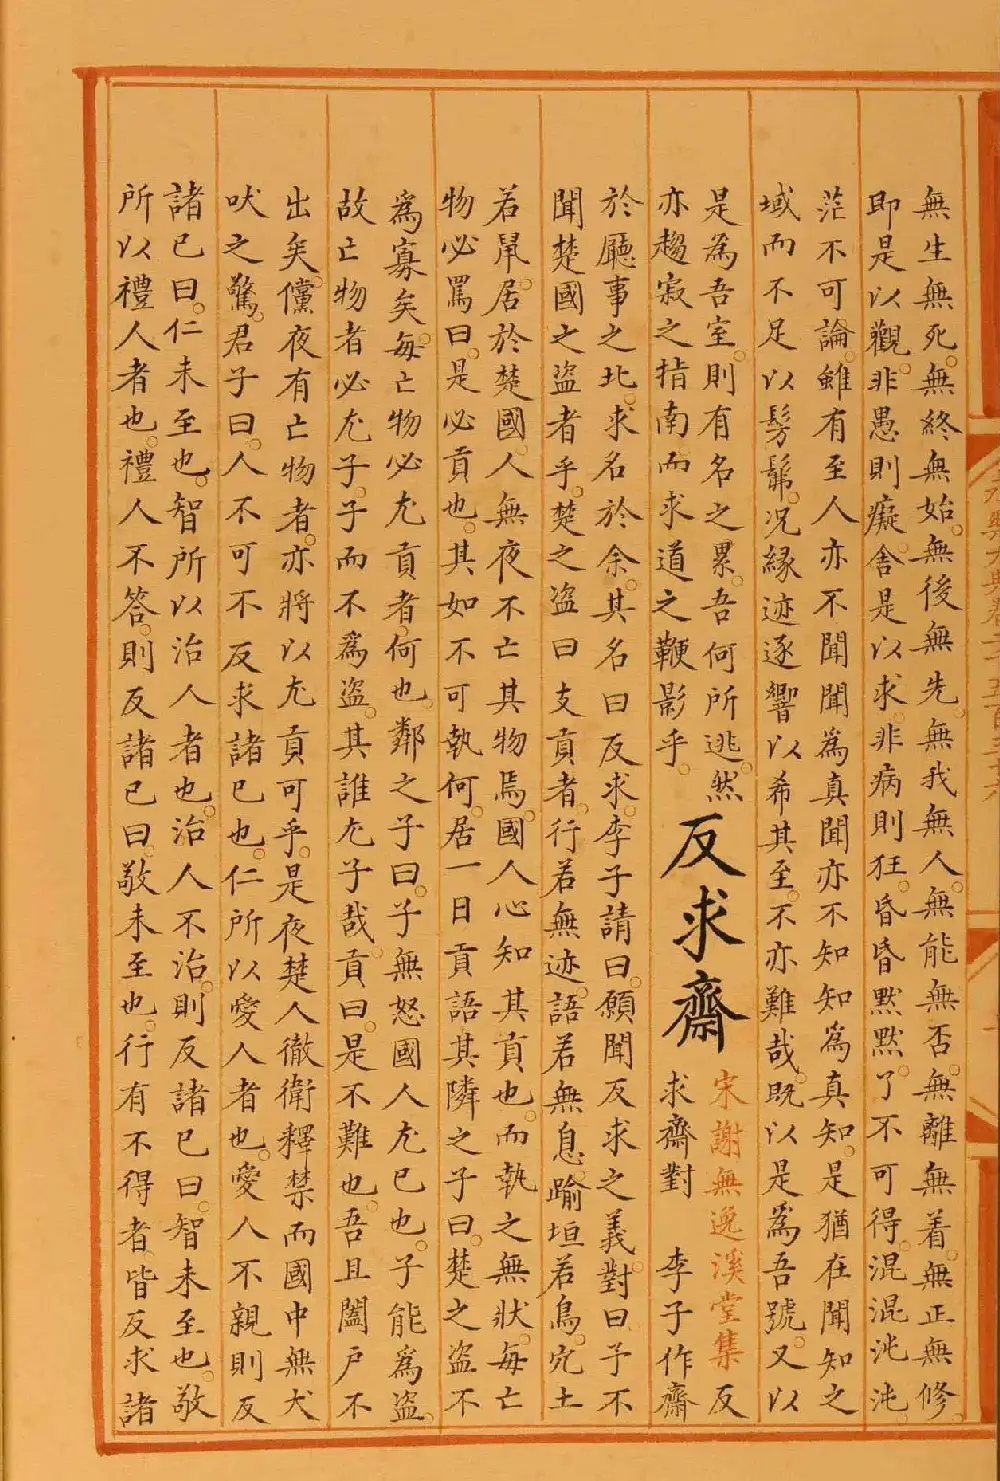 無生無死。無終無始。無後無先。無我無人。無能無否。無離無着。無正無修。
即是以觀。非愚則癡。舍是以求。非病則狂。昏昏默默。了不可得。混混沌沌。
茫不可論。雖有至人亦不聞聞為真聞亦不知知為真知。是猶在聞知之
域而不足以髣髴。况緣迹逐響以希其至。不亦難哉。既以是為吾號。又以
是為吾室。則有名之累。吾何所逃。然
亦趨寂之指南而求道之鞭影乎。
反求齋
宋謝無逸溪堂集反
求齋對 李子作齋
於廳事之北。求名於余。其名曰反求。李子請曰。願聞反求之義。對曰子不
聞楚國之盜者乎。楚之盜曰支貢者。行若無迹。語若無息。踰垣若鳥。穴土
若鼠。居於楚國。人無夜不亡其物焉。國人心知其貢也。而執之無狀。每亡
物必罵曰。是必貢也。其如不可執何。居一日貢語其隣之子曰。楚之盜不
為寡矣。每亡物必尤貢者何也。鄰之子曰。子無怒國人尤已也。子能為盜。
故亡物者必尤子。子而不為盜。其誰尤子哉。貢曰。是不難也。吾且闔户不
出矣。儻夜有亡物者。亦將以尤貢可乎。是夜楚人徹衛釋禁而國中無犬
吠之驚。君子曰。人不可不反求諸已也。仁所以愛人者也。愛人不親則反
諸已曰。仁未至也。智所以治人者也。治人不治。則反諸已曰。智未至也。敬
所以禮人者也。禮人不答。則反諸已曰。敬未至也。行有不得者。皆反求諸